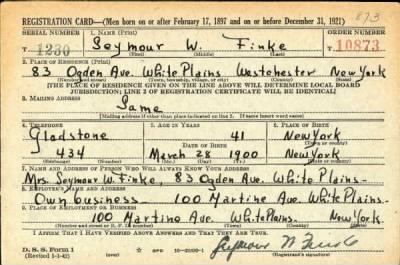 873
REGISTRATION CARD—(Men born on or after February 17, 1897 and on or before December 31, 1921)
SERIAL NUMBER 1. NAME (Print) ORDER NUMBER
T 1230 Seymour W. Finke 10873
(First) (Middle) (Last)
2. PLACE OF RESIDENCE (Print)
83 Ogden Ave. White Plains. Westchester New York
(Number and street) (Town, township, village, or city) (County) (State)
[THE PLACE OF RESIDENCE GIVEN ON THE LINE ABOVE WILL DETERMINE LOCAL BOARD
JURISDICTION; LINE 2 OF REGISTRATION CERTIFICATE WILL BE IDENTICAL]
3. MAILING ADDRESS
Same
[Mailing address if other than place indicated on line 2. If same insert word same]
4. TELEPHONE 5. AGE IN YEARS 6. PLACE OF BIRTH
Gladstone 41 New York
DATE OF BIRTH (Town or county)
434 March 28 1900 New York
(Exchange) (Number) (Mo.) (Day) (Yr.) (State or country)
7. NAME AND ADDRESS OF PERSON WHO WILL ALWAYS KNOW YOUR ADDRESS
Mrs. Seymour W. Finke, 83 Ogden Ave. White Plains-
8. EMPLOYER'S NAME AND ADDRESS
Own business- 100 Martine Ave. White Plains-
9. PLACE OF EMPLOYMENT OR BUSINESS
100 Martine Ave. White Plains. New York.
(Number and street or R. F. D. number) (Town) (County) (State)
I AFFIRM THAT I HAVE VERIFIED ABOVE ANSWERS AND THAT THEY ARE TRUE.
D. S. S. Form 1
(Revised 1-1-42) (over) Seymour W Finke
(Registrant's signature)